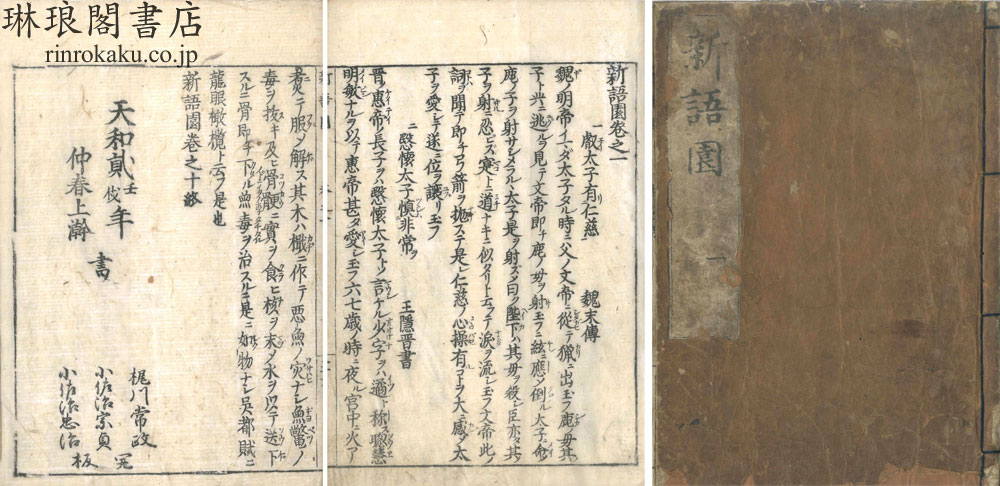 琳琅閣書店
rinrokaku.co.jp
新語園 一
新語園卷之一
一 叡太子有仁慈 魏末傳
魏ノ明帝イマダ太子タル時ニ父ノ文帝ニ從テ獵ニ出玉フ鹿毋其
子ト共ニ逃ルヲ見テ文帝即チ鹿ノ毋ヲ射玉フニ絃ニ應メ倒ル太子ニ命
鹿ノ子ヲ射サシメラル太子是ヲ射ズメ曰ク陛下ハ其毋ヲ殺シ臣亦タ其
子ヲ射ニ忍ビズ寔ト道ナキニ似タリト云テ涙ヲ流シ玉フ文帝此ノ
詞ヲ聞テ即チ弓箭ヲ抛ステ是レ仁慈ノ心操有コトヲ大ニ感メ太
子ヲ愛シテ遂ニ位ヲ讓リ玉フ
二 愍懷太子慎非常ヲ 王隱晉書
晉ノ惠帝ノ長子ヲハ愍懷太子トゾ言ケル少字ヲハ遹ト稱ス聰慧
明敏ナルヲ以テ惠帝甚タ愛シ玉フ六七歳ノ時ニ夜ル宮中ニ火アリ
煮テ服メ解ス其木ハ檝ニ作テ悪魚ノ灾ナシ魚鼈ノ
毒ヲ抜キ及ニ骨骾ニ實ヲ食ヒ核ヲ末メ水ヲ以テ送下
スルニ骨即チ下ル魚毒ヲ治スルニ是ニ如物ナシ呉都賦ニ
龍眼橄欖ト云フ是也
新語園卷之十終
天和貳壬戌年
仲春上澣 書
梶川常政
小佐治宗貞
小佐治忠治 板